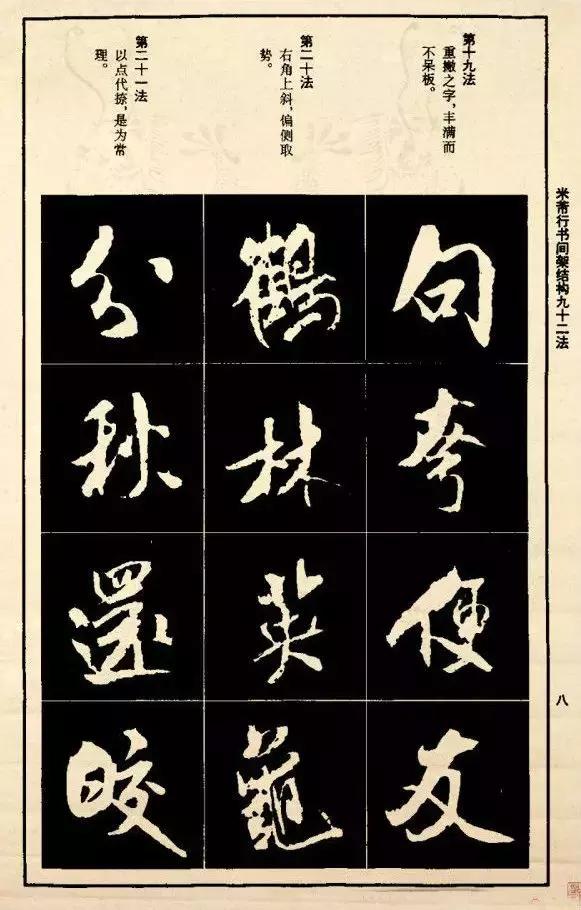 米芾行书间架结构九十二法
第十九法
重撇之字，丰满而
不呆板。
句
夸
便
友
第二十法
右角上斜，偏侧取
势。
鹤
林
英
第二十一法
以点代捺，是为常
理。
分
秋
還
皎
八